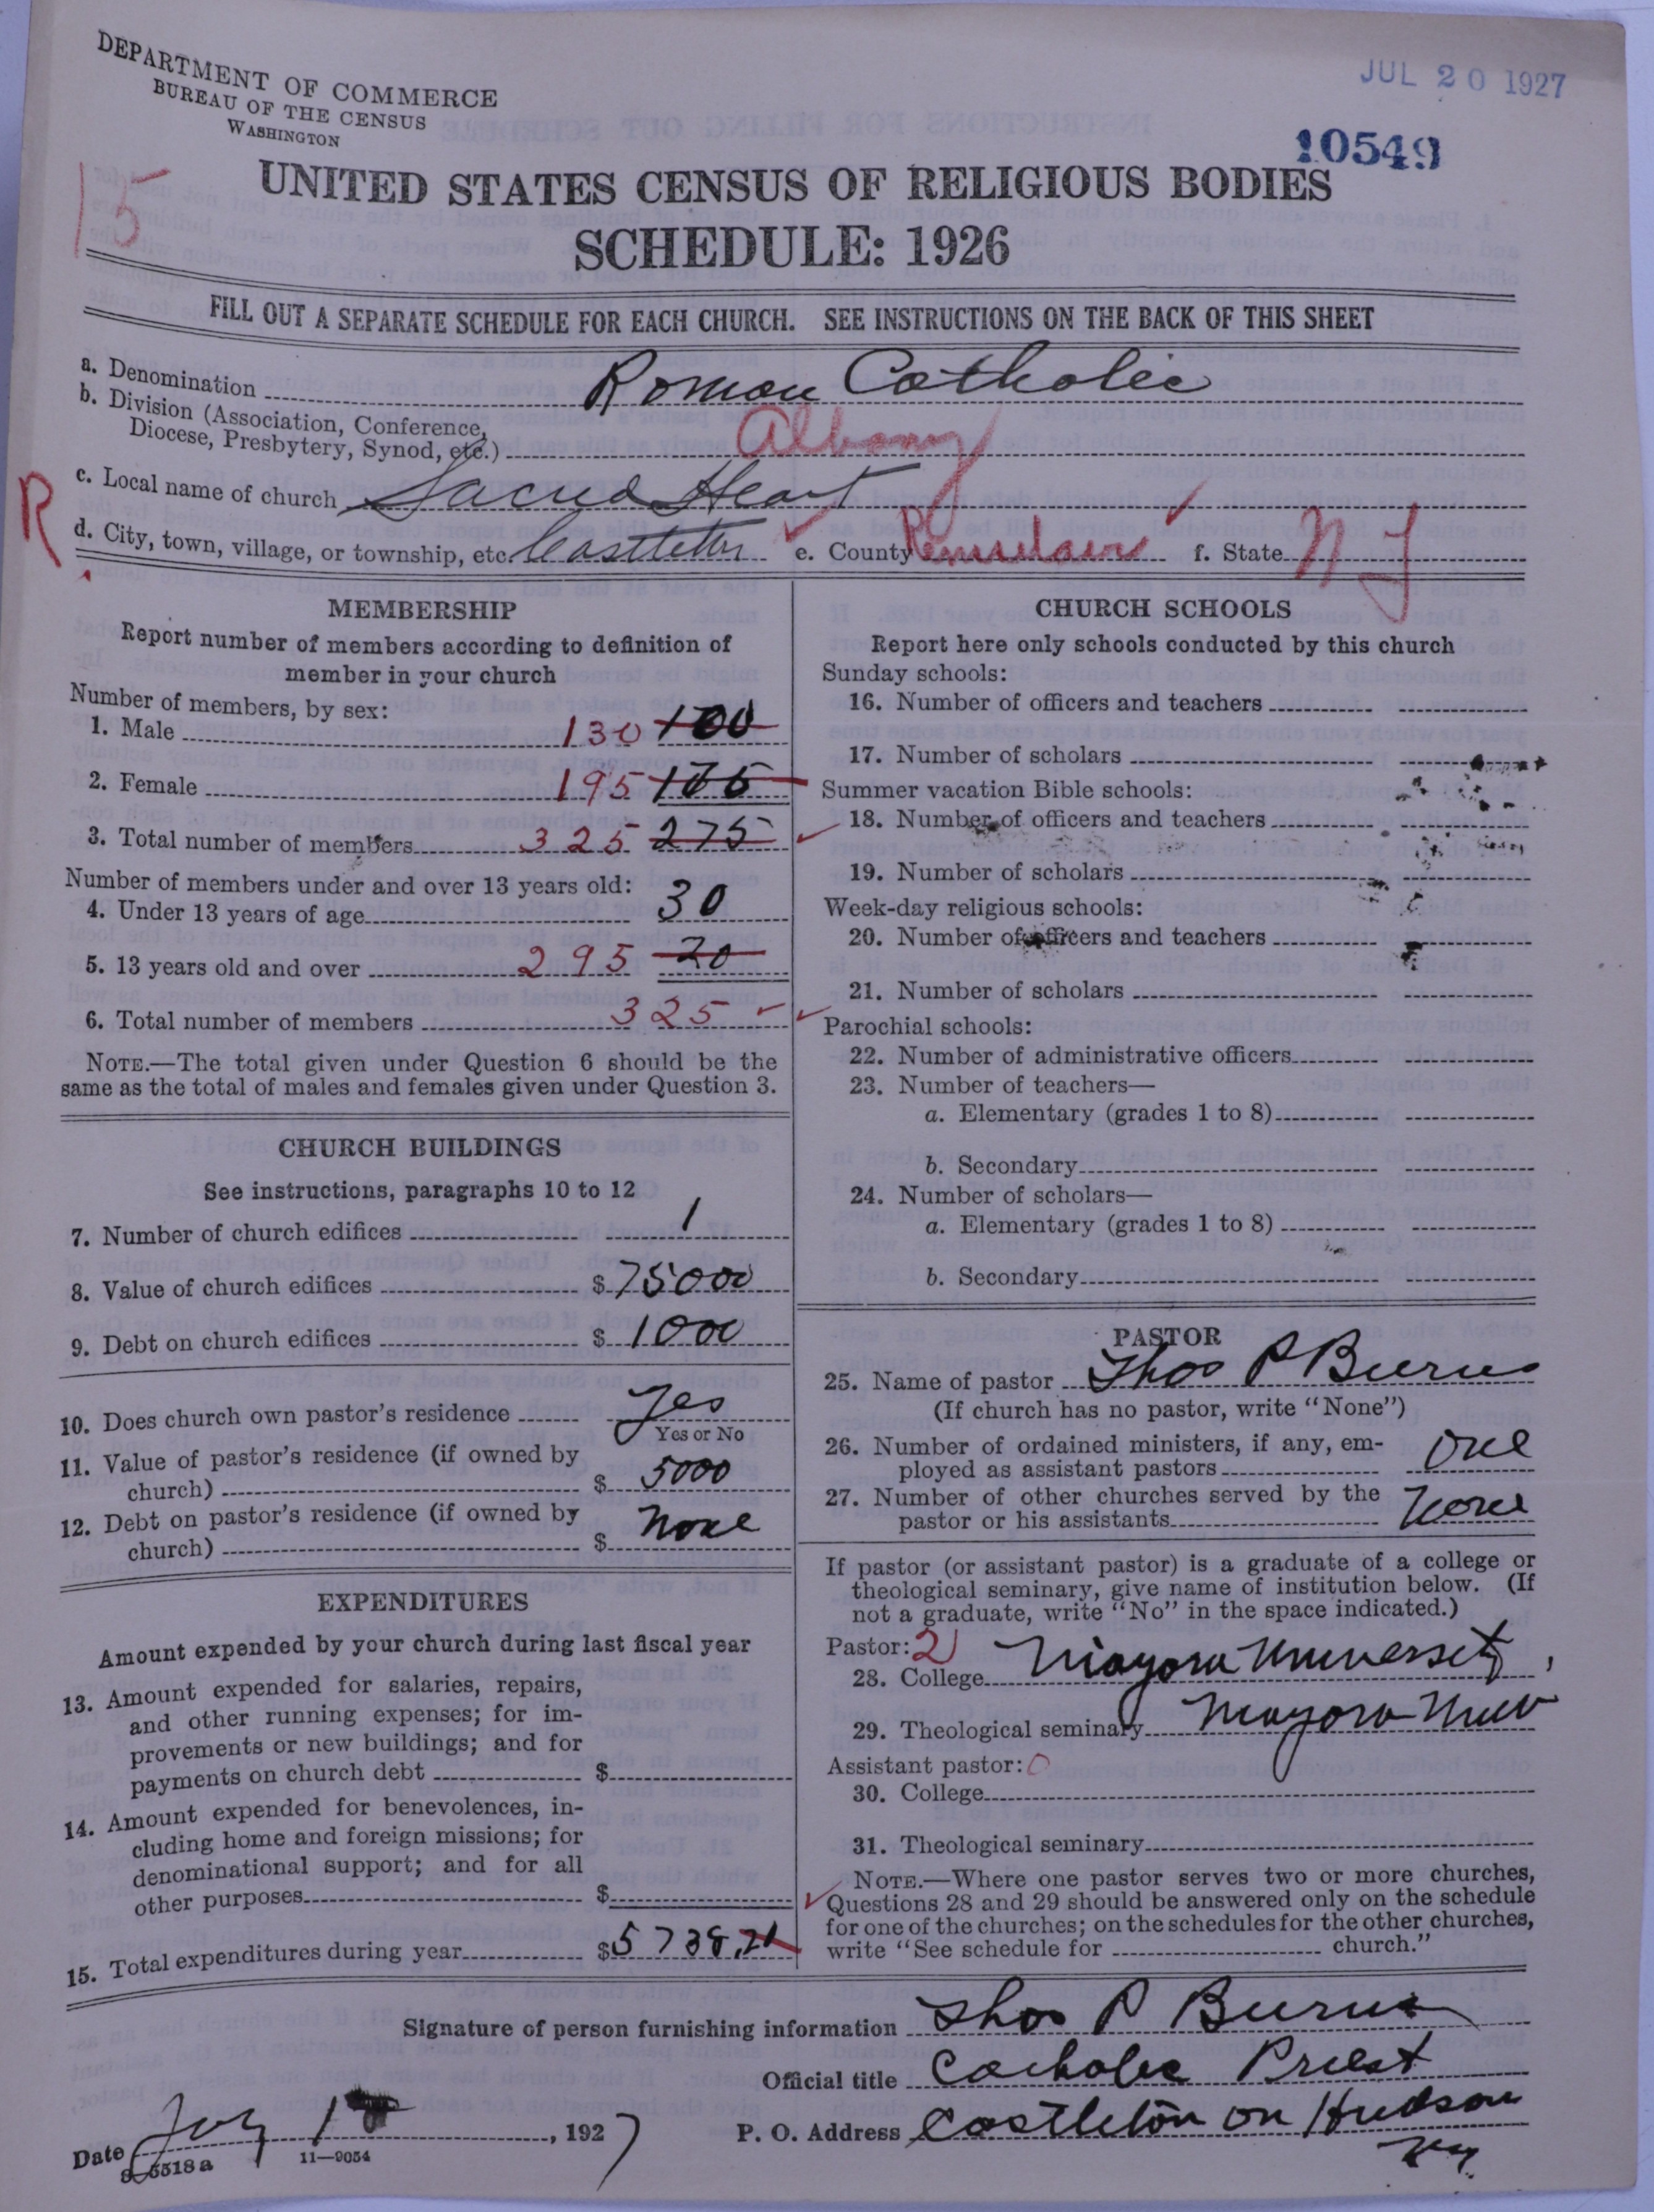 DEPARTMENT OF COMMERCE
BUREAU OF THE CENSUS
WASHINGTON
JUL 20 1927
10549
15
UNITED STATES CENSUS OF RELIGIOUS BODIES
SCHEDULE: 1926
FILL OUT A SEPARATE SCHEDULE FOR EACH CHURCH. SEE INSTRUCTIONS ON THE BACK OF THIS SHEET
a. Denomination Roman Catholic
b. Division (Association, Conference,
Diocese, Presbytery, Synod, etc.) Albany
R
c. Local name of church Sacred Heart
d. City, town, village, or township, etc. Castleton e. County Rensselaer f. State N Y
MEMBERSHIP
Report number of members according to definition of
member in your church
Number of members, by sex:
1. Male 130 100
2. Female 195
3. Total number of members 325 275
Number of members under and over 13 years old:
4. Under 13 years of age 30
5. 13 years old and over 295 20
6. Total number of members 325
NOTE.—The total given under Question 6 should be the
same as the total of males and females given under Question 3.
CHURCH BUILDINGS
See instructions, paragraphs 10 to 12
7. Number of church edifices 1
8. Value of church edifices $ 75000
9. Debt on church edifices $ 1000
10. Does church own pastor's residence Yes
Yes or No
11. Value of pastor's residence (if owned by
church) $ 5000
12. Debt on pastor's residence (if owned by
church) $ None
EXPENDITURES
Amount expended by your church during last fiscal year
13. Amount expended for salaries, repairs,
and other running expenses; for im-
provements or new buildings; and for
payments on church debt $
14. Amount expended for benevolences, in-
cluding home and foreign missions; for
denominational support; and for all
other purposes $
15. Total expenditures during year $ 5738.21
CHURCH SCHOOLS
Report here only schools conducted by this church
Sunday schools:
16. Number of officers and teachers
17. Number of scholars
Summer vacation Bible schools:
18. Number of officers and teachers
19. Number of scholars
Week-day religious schools:
20. Number of officers and teachers
21. Number of scholars
Parochial schools:
22. Number of administrative officers
23. Number of teachers—
a. Elementary (grades 1 to 8)
b. Secondary
24. Number of scholars—
a. Elementary (grades 1 to 8)
b. Secondary
PASTOR
25. Name of pastor Thos P Burns
(If church has no pastor, write "None")
26. Number of ordained ministers, if any, em-
ployed as assistant pastors one
27. Number of other churches served by the
pastor or his assistants None
If pastor (or assistant pastor) is a graduate of a college or
theological seminary, give name of institution below. (If
not a graduate, write "No" in the space indicated.)
Pastor: 2
28. College University
29. Theological seminary
Assistant pastor: 0
30. College
31. Theological seminary
NOTE.—Where one pastor serves two or more churches,
Questions 28 and 29 should be answered only on the schedule
for one of the churches; on the schedules for the other churches,
write "See schedule for church."
Signature of person furnishing information Thos P Burns
Official title Catholic Priest
Date July 1 , 1927
P. O. Address Castleton on Hudson
N.Y.
8-5518 a 11-9054